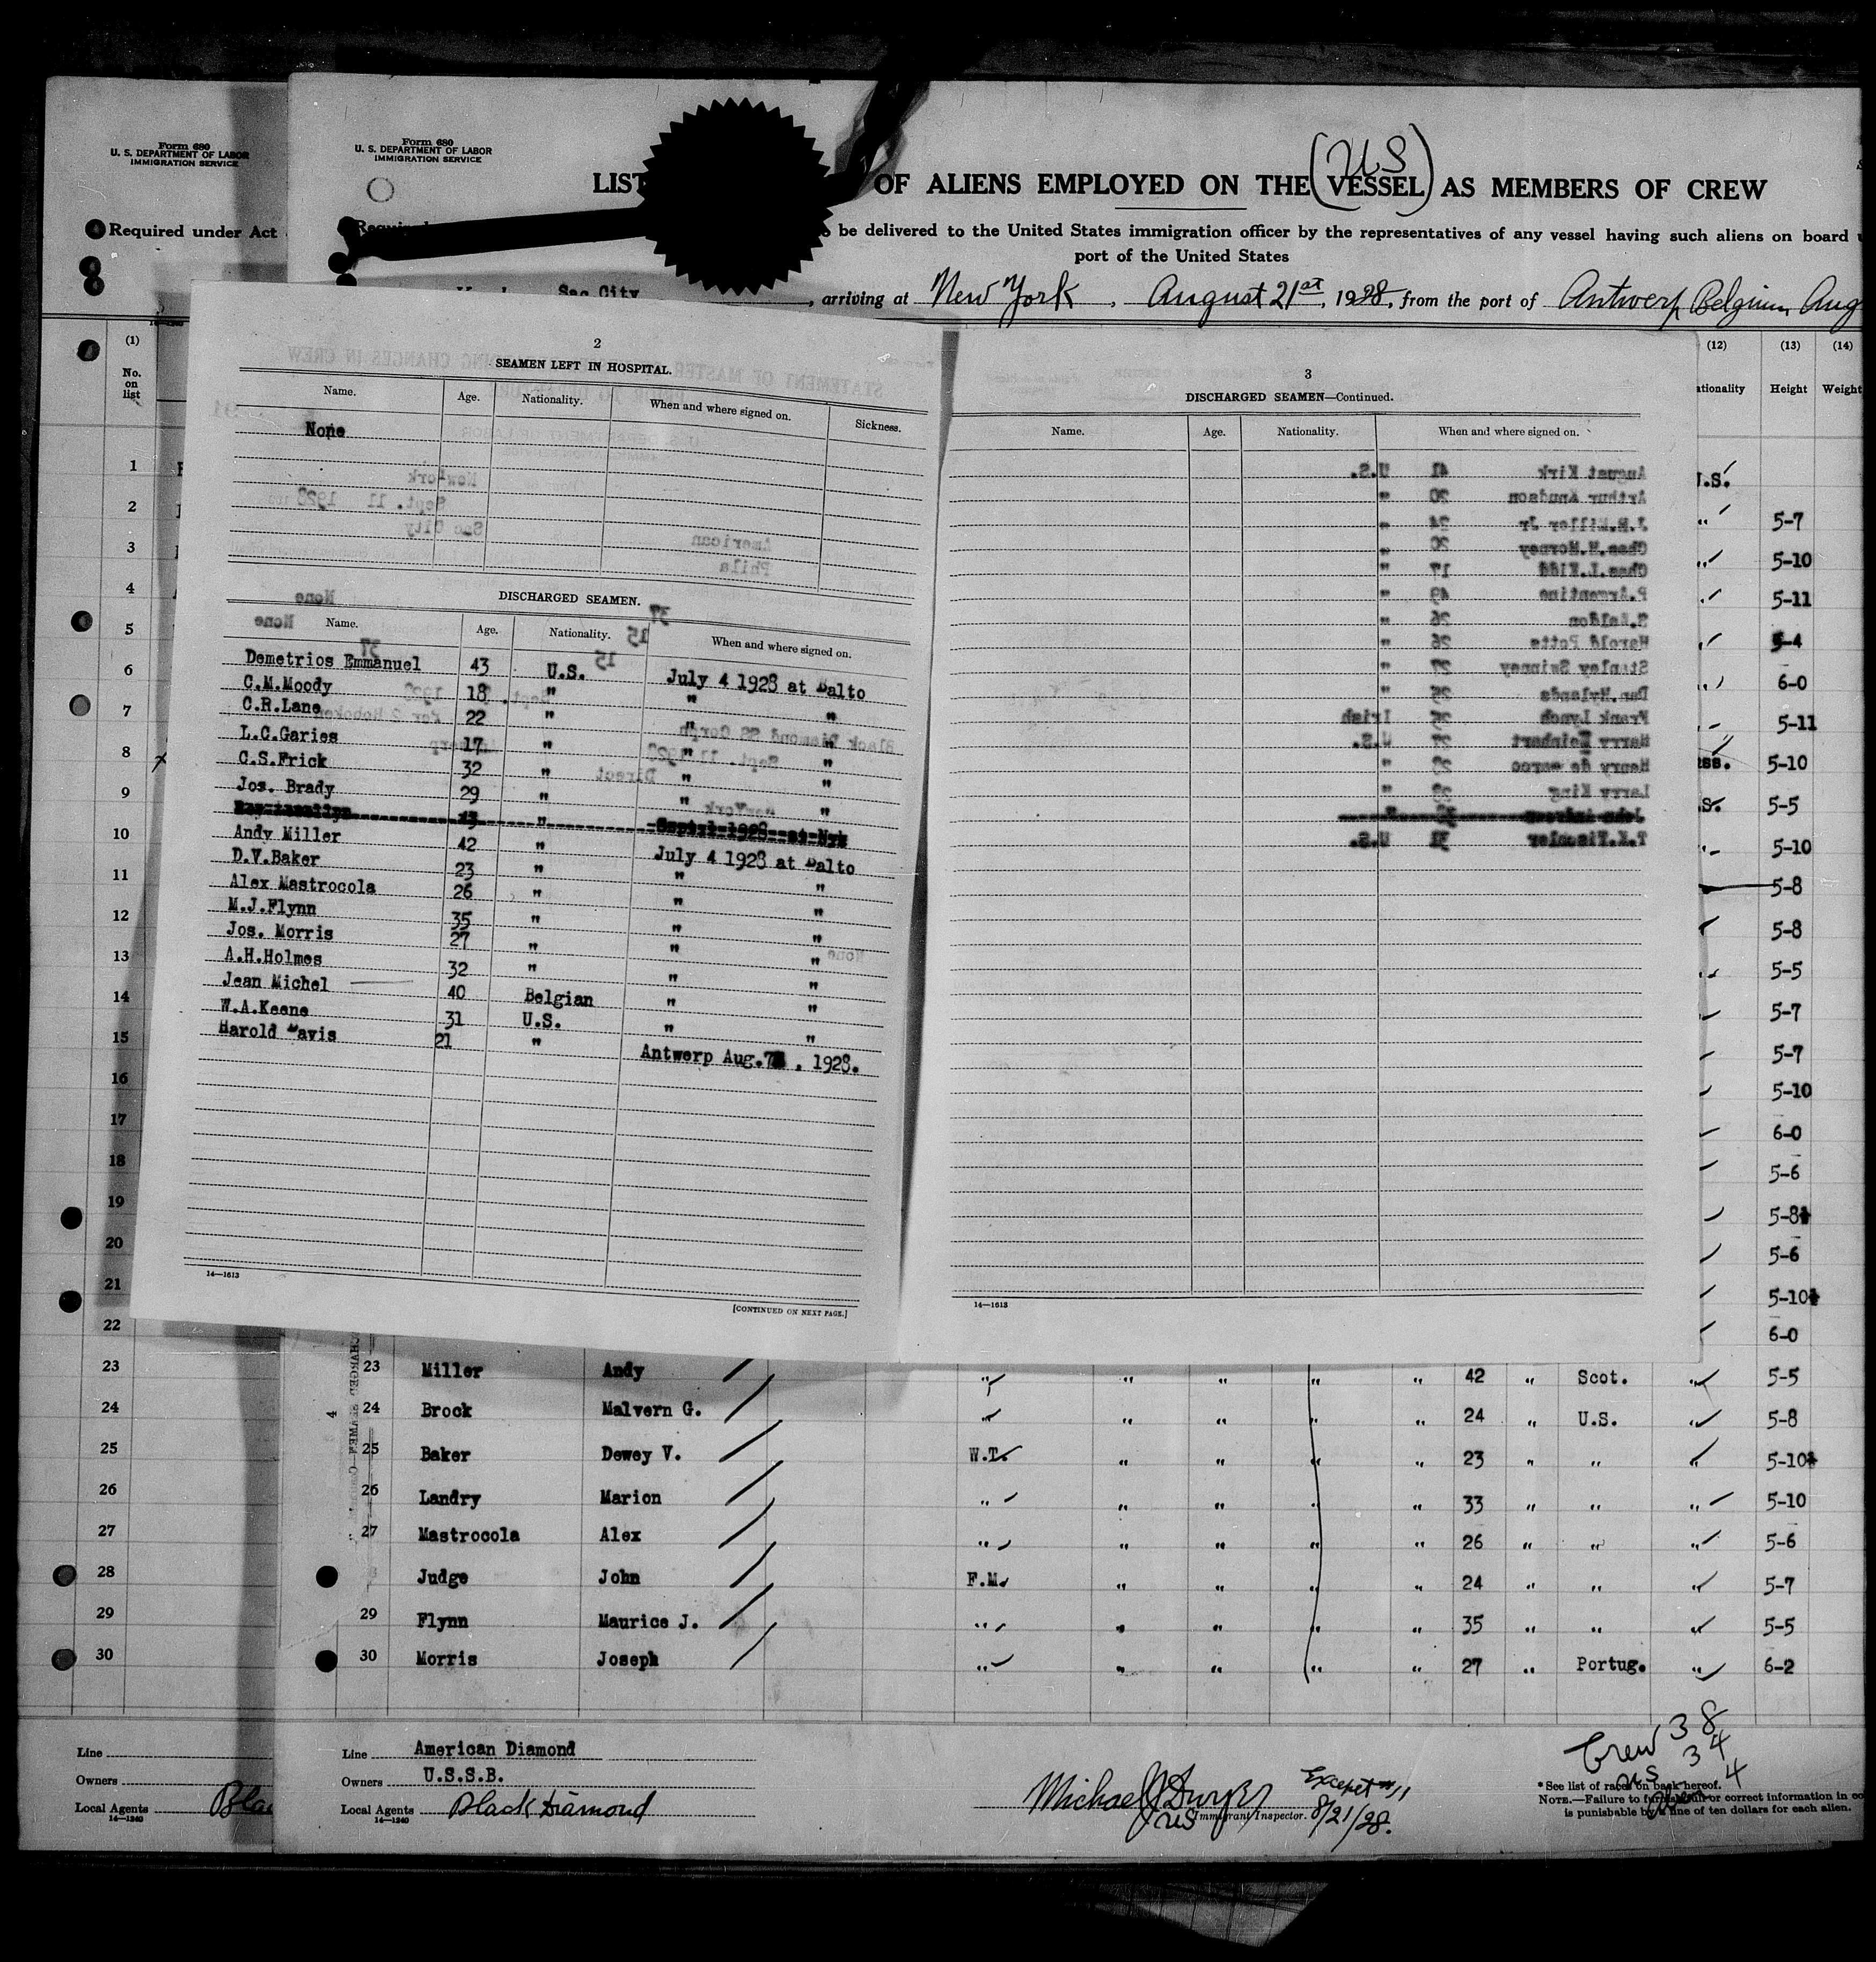 Form 680
U. S. DEPARTMENT OF LABOR
IMMIGRATION SERVICE
Required under Act
(1)
No.
on
list
1
2
3
4
5
6
7
8
9
10
11
12
13
14
15
16
17
18
19
20
21
22
23
24
25
26
27
28
29
30
Line
Owners
Local Agents
14—1240
Form 680
U. S. DEPARTMENT OF LABOR
IMMIGRATION SERVICE
(US)
LIST OF ALIENS EMPLOYED ON THE VESSEL AS MEMBERS OF CREW
be delivered to the United States immigration officer by the representatives of any vessel having such aliens on board
port of the United States
Sac City, arriving at New York, August 21st, 1928, from the port of Antwerp Belgium Aug
2
SEAMEN LEFT IN HOSPITAL.
Name. Age. Nationality. When and where signed on. Sickness.
None
DISCHARGED SEAMEN.
Name. Age. Nationality. When and where signed on.
Demetrios Emmanuel 43 U.S. July 4 1928 at Balto
C.M.Moody 18 " " "
C.R.Lane 22 " " "
L.C.Garies 17 " " "
C.S.Frick 32 " " "
Jos. Brady 29 " " "
Andy Miller 42 " July 4 1928 at Balto
D.V.Baker 23 " " "
Alex Mastrocola 26 " " "
M.J.Flynn 35 " " "
Jos. Morris 27 " " "
A.H.Holmes 32 " " "
Jean Michel 40 Belgian " "
W.A.Keene 31 U.S. " "
Harold Davis 21 " Antwerp Aug.7 , 1928.
14—1613
[CONTINUED ON NEXT PAGE.]
3
DISCHARGED SEAMEN—Continued.
Name. Age. Nationality. When and where signed on.
August Kirk 41 U.S.
Arthur Knudson 20 "
J.H.Miller Jr 24 "
Chas.H.Morney 20 "
Chas.L.Kidd 17 "
P.Argentine 49 "
Harold Potts 26 "
Stanley Swinney 27 "
Dan.Hylands 25 "
Frank Lynch 25 Irish
Harry Reinhart 27 U.S.
Larry King 28 "
14—1613
(12) (13) (14)
ationality Height Weight
5-7
5-10
5-11
5-4
6-0
5-11
5-10
5-5
5-10
5-8
5-8
5-5
5-7
5-7
5-10
6-0
5-6
5-8
5-6
5-10
6-0
23 Miller Andy " " " " " 42 " Scot. " 5-5
24 Brock Malvern G. " " " " " 24 " U.S. " 5-8
25 Baker Dewey V. W.T. " " " " 23 " " " 5-10
26 Landry Marion " " " " " 33 " " " 5-10
27 Mastrocola Alex " " " " " 26 " " " 5-6
Judge John F.M. " " " " 24 " " " 5-7
29 Flynn Maurice J. " " " " " 35 " " " 5-5
30 Morris Joseph " " " " " 27 " Portug. " 6-2
Line American Diamond
Owners U.S.S.B.
Local Agents Black Diamond
14—1240
Michael J Dwyer
US Immigrant Inspector.
Except #11
8/21/28.
Crew 38
US 34
4
* See list of races on back hereof.
NOTE.—Failure to furnish full or correct information in
is punishable by a fine of ten dollars for each alien.